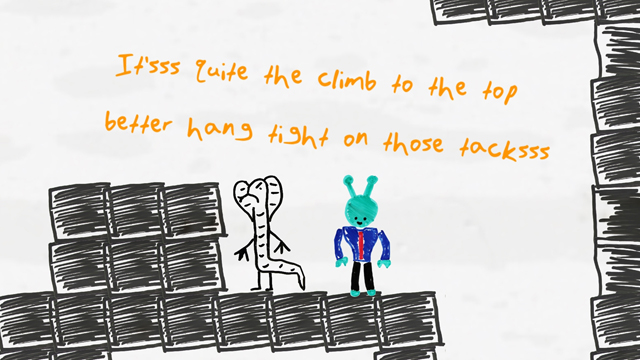 It'sss quite the climb to the top
better hang tight on those tacksss